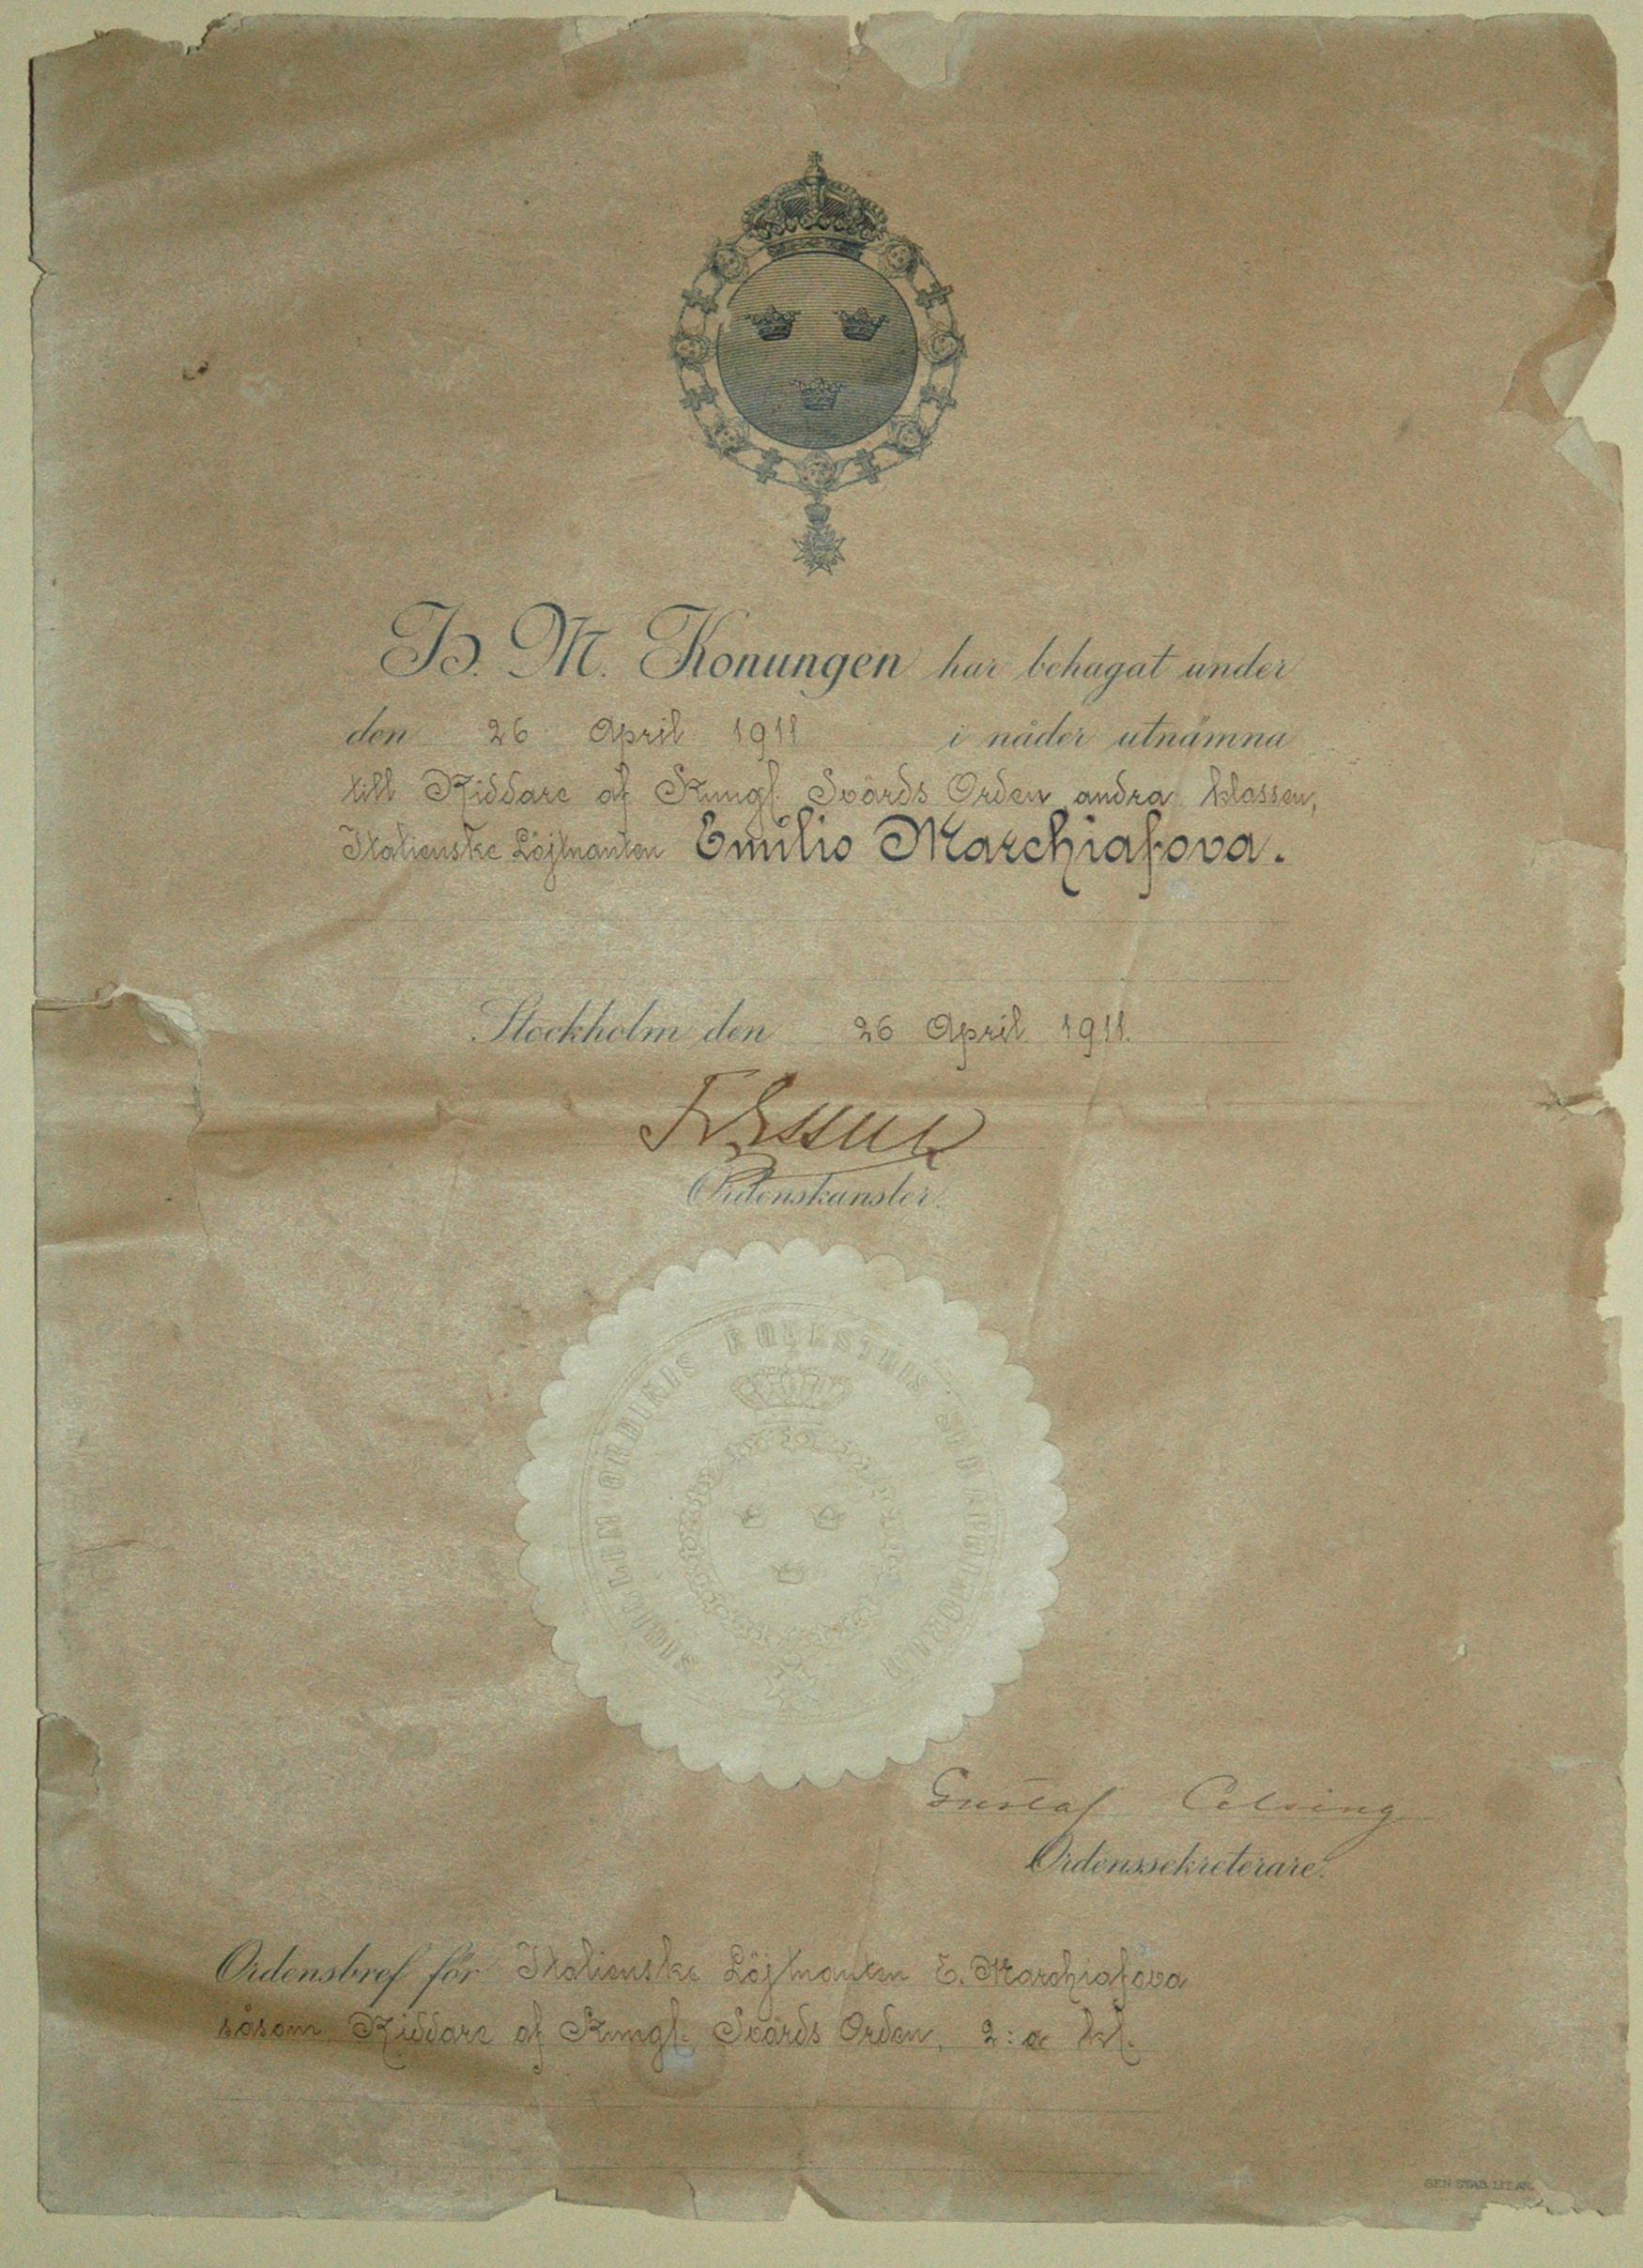 H. M. Konungen har behagat under
den 26 April 1911 i nåder utnämna
till Riddare af Kungl. Svärds Orden andra klassen,
Italienske Löjtnanten Emilio Marchiafova.
Stockholm den 26 April 1911.
Ordenskansler.
SIGILLUM ORDINIS EQUESTRIS SERAPHIMORUM
Gustaf Celsing
Ordenssekreterare.
Ordensbref för Italienske Löjtnanten E. Marchiafova
såsom Riddare af Kungl. Svärds Orden, 2:a kl.
GEN. STAB. LIT. AN.